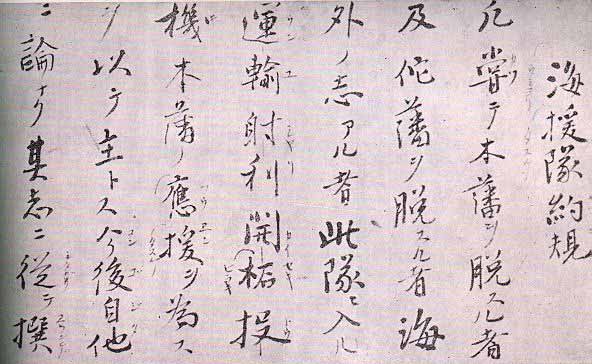 海援隊約規
凡嘗テ本藩ヲ脱スル者
及佗藩ヲ脱スル者海
外ノ志アル者此隊ニ入ル
運輸射利開柘投
機本藩ノ應援ヲ為ス
ヲ以テ主トス今後自他
ニ論ナク其志ニ従テ撰